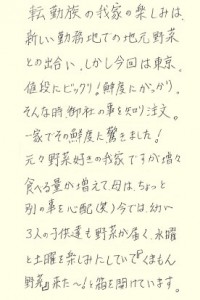 転勤族の我家の楽しみは、
新しい勤務地での地元野菜
との出合い。しかし今回は東京。
値段にビックリ!鮮度にがっかり。
そんな時御社の事を知り注文。
一家でその鮮度に驚きました!
元々野菜好きの我家ですが増々
食べる量が増えて、母は、ちょっと
別の事を心配(笑)今では、幼い
3人の子供達も野菜が届く、水曜
と土曜を楽しみにしていて"くまもん
野菜"来た〜!と箱を開けています。